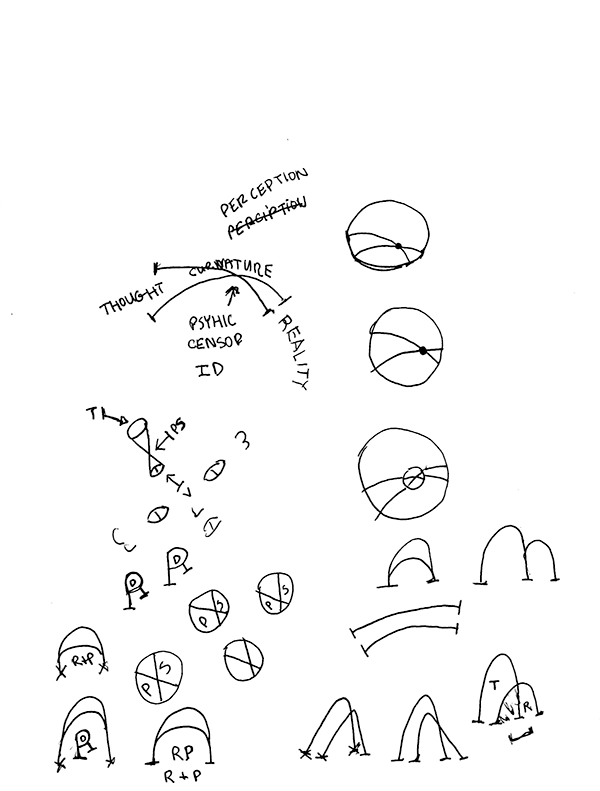 PERCEPTION
PERCIPTION
CURVATURE
THOUGHT
PSYHIC
CENSOR
ID
REALITY
T
PS
3
D
D
P S
P S
R+P
P S
D
RP
R+P
T
R